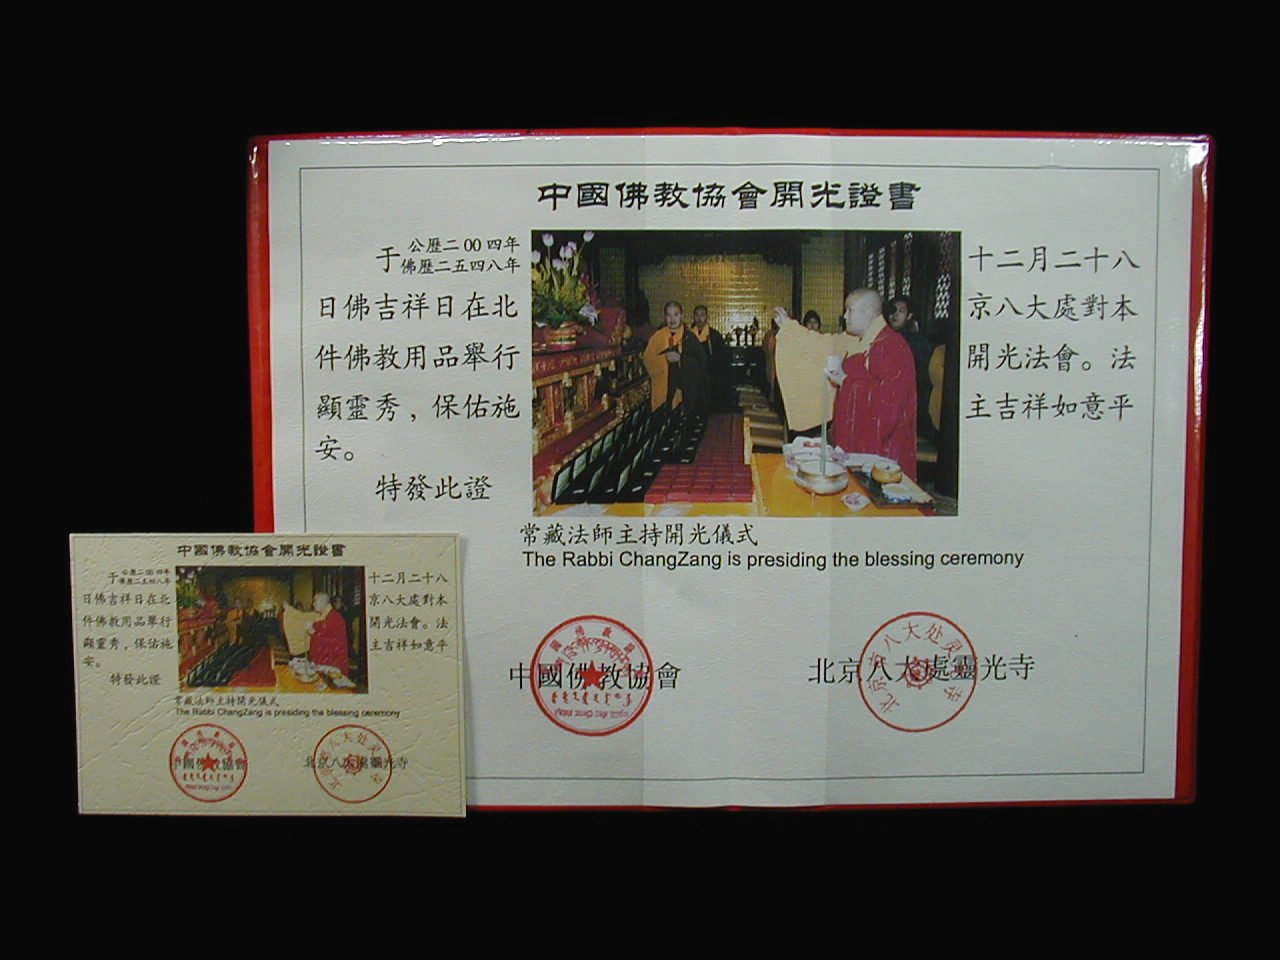 中國佛教協會開光證書
于 公歷二00四年 十二月二十八
佛歷二五四八年
日佛吉祥日在北 京八大處對本
件佛教用品舉行 開光法會。法
顯靈秀，保佑施 主吉祥如意平
安。
特發此證
常藏法師主持開光儀式
The Rabbi ChangZang is presiding the blessing ceremony
中國佛教協會 北京八大處靈光寺
北京八大处灵光寺
中國佛教協會開光證書
于 公歷二00四年 十二月二十八
佛歷二五四八年
日佛吉祥日在北 京八大處對本
件佛教用品舉行 開光法會。法
顯靈秀，保佑施 主吉祥如意平
安。
特發此證
常藏法師主持開光儀式
The Rabbi ChangZang is presiding the blessing ceremony
中國佛教協會 北京八大處靈光寺
北京八大处灵光寺